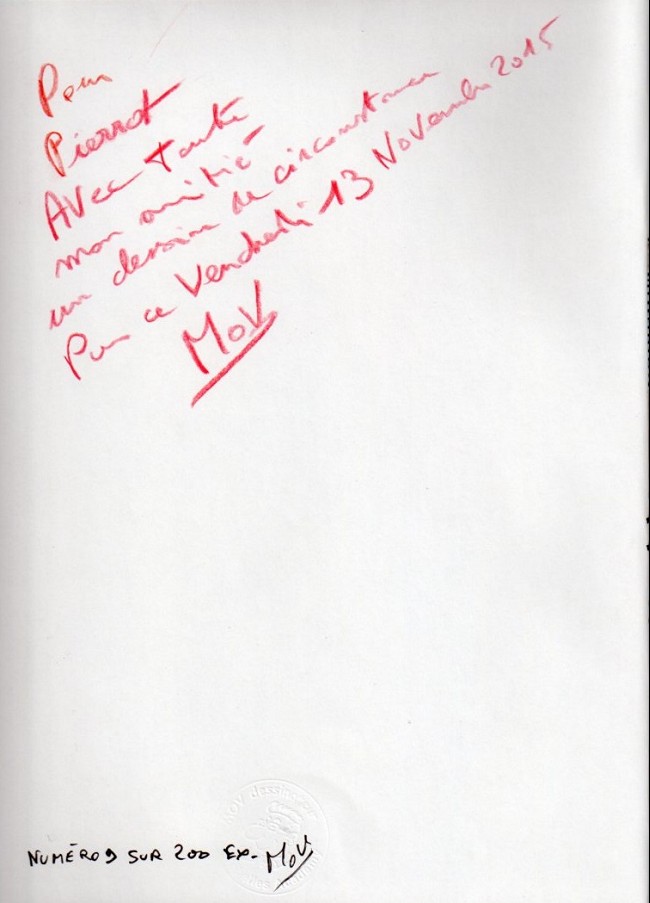 Pour
Pierrot
Avec toute
mon amitié
un dessin de circonstance
Pour ce Vendredi 13 Novembre 2015
MOV
MOV dessinateur
NUMÉRO 9 SUR 200 EX. MOV